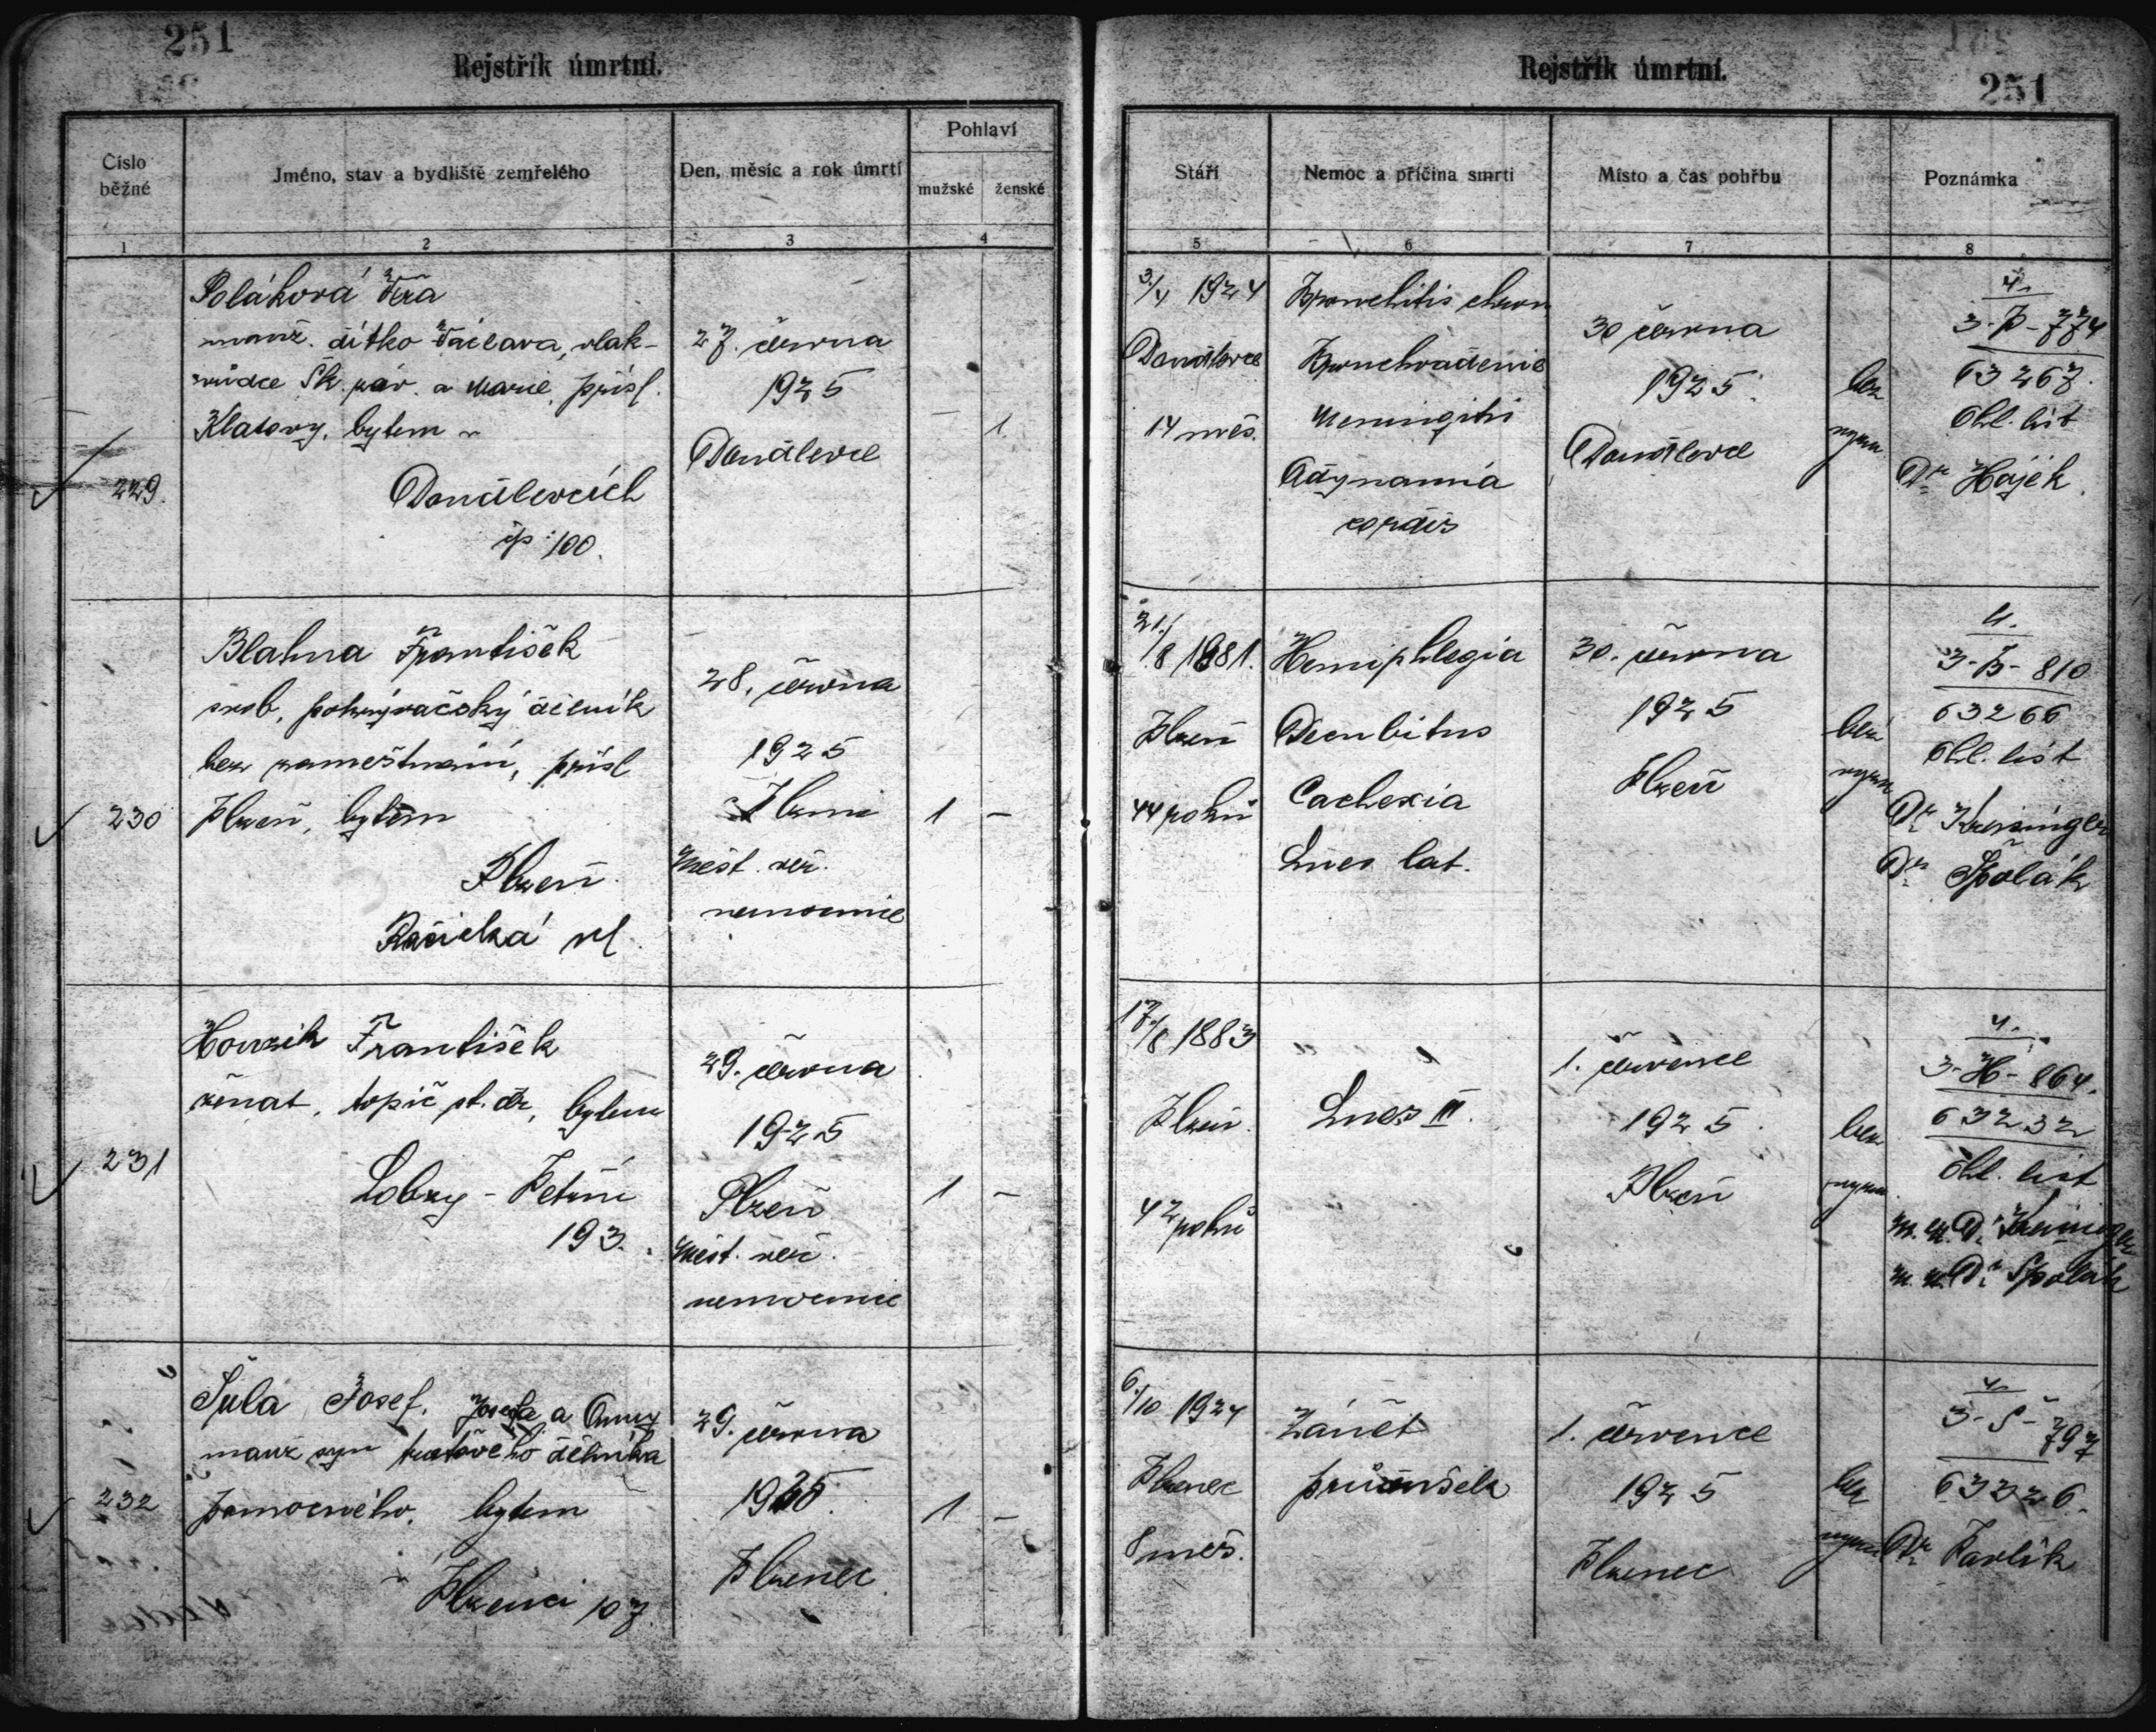 251
Rejstřík úmrtní.
Číslo běžné
Jméno, stav a bydliště zemřelého
Den, měsíc a rok úmrtí
Pohlaví
mužské
ženské
1
2
3
4
Poláková Věra
manž. dítko Václava, vlak-
vůdce Šk. záv. a Marie, přísl.
Klatovy, bytem v
229.
Doudlevcích
čp. 100.
27. června
1925
Doudlevce
1.
Blahna František
svob, pokrývačský dělník
bez zaměstnání, přísl
230
Plzeň, bytem
Plzeň
ul.
28. června
1925
Plzni
Měst. veř.
nemocnice
1 –
Houzik František
ženat, topič st. dr, bytem
231
Lobzy - Petrín
193.
29. června
1925
Plzeň
Měst. veř.
nemocnice
1 –
Šula Josef, Josefa a Anny
manž syn dělníka
232
pomocného, bytem
v Plzenci 107.
29. června
1925
Plzenec
1 –
Rejstřík úmrtní.
251
Stáří
Nemoc a příčina smrti
Místo a čas pohřbu
Poznámka
5
6
7
8
3./4 1924
Doudlevce
14 měs.
Bronchitis chron
Bronchoadenie
Meningitis
Adynamia
cordis
30 června
1925
Doudlevce
bez
4.
3-P-774
63267.
Ohl. list
Dr Hájek
21./8 1881.
Plzeň
44 roků
Hemiphlegia
Decubitus
Cachexia
Lues lat.
30. června
1925
Plzeň
bez
4.
3-B-810
63266
Ohl. list
Dr Kreisinger
Dr Špolák
17./8 1883
Plzeň.
42 roků
Lues III.
1. července
1925.
Plzeň
bez
4.
3-H-864.
63232
Ohl. list
m. u. Dr Kreisinger
m. u. Dr Špolák
6./10 1924
Plzenec
8 měs.
Zánět
průdušek
1. července
1925
Plzenec
bez
4.
3-Š-797
63326.
Dr Pavlík